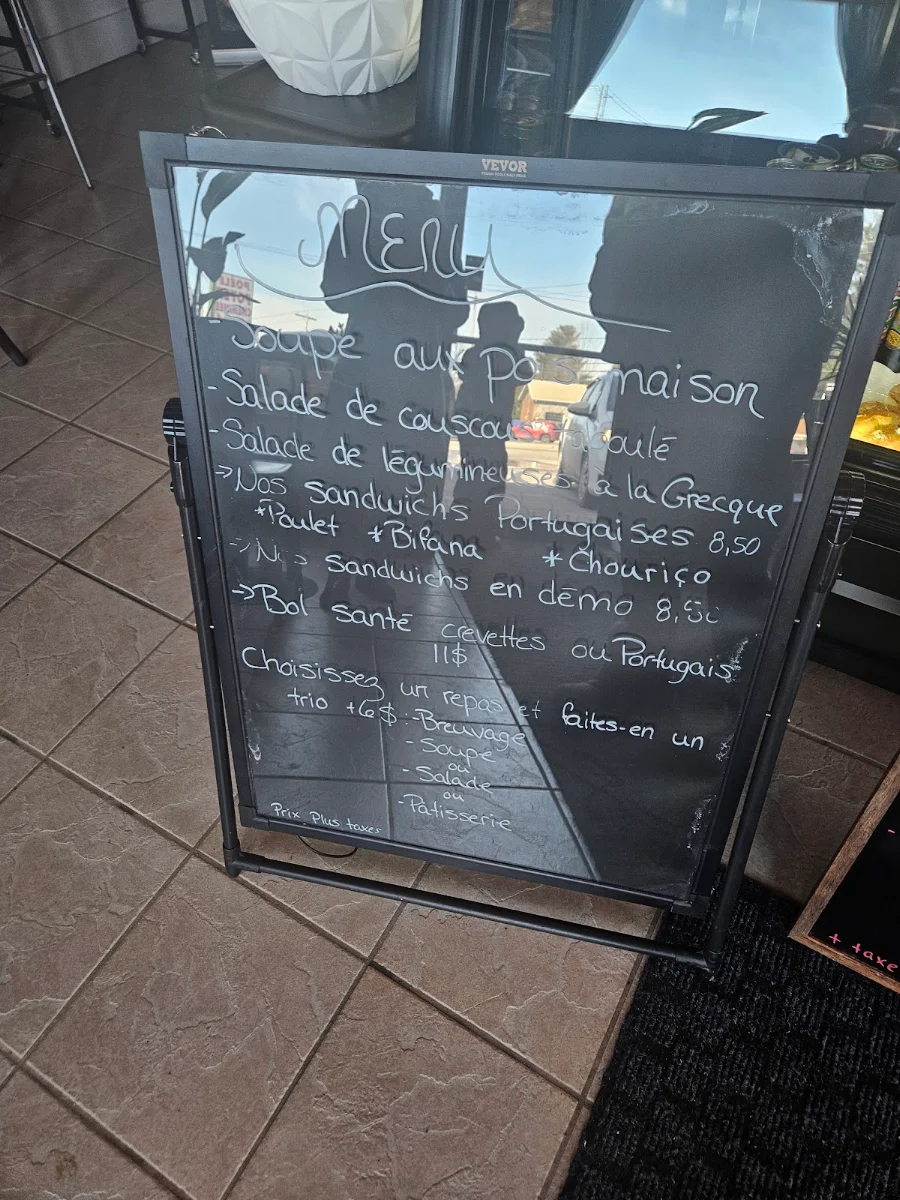 VEVOR
MENU
- Soupe aux pois maison
- Salade de couscous roulé
- Salade de légumineuses à la Grecque
→ Nos sandwichs Portugaises 8,50
*Poulet *Bifana *Chouriço
→ Nos sandwichs en démo 8,50
→ Bol santé crevettes ou Portugais
11$
Choisissez un repas et faites-en un
trio +6$ - Breuvage
- Soupe
ou
- Salade
ou
- Pâtisserie
Prix Plus taxes
+ taxe